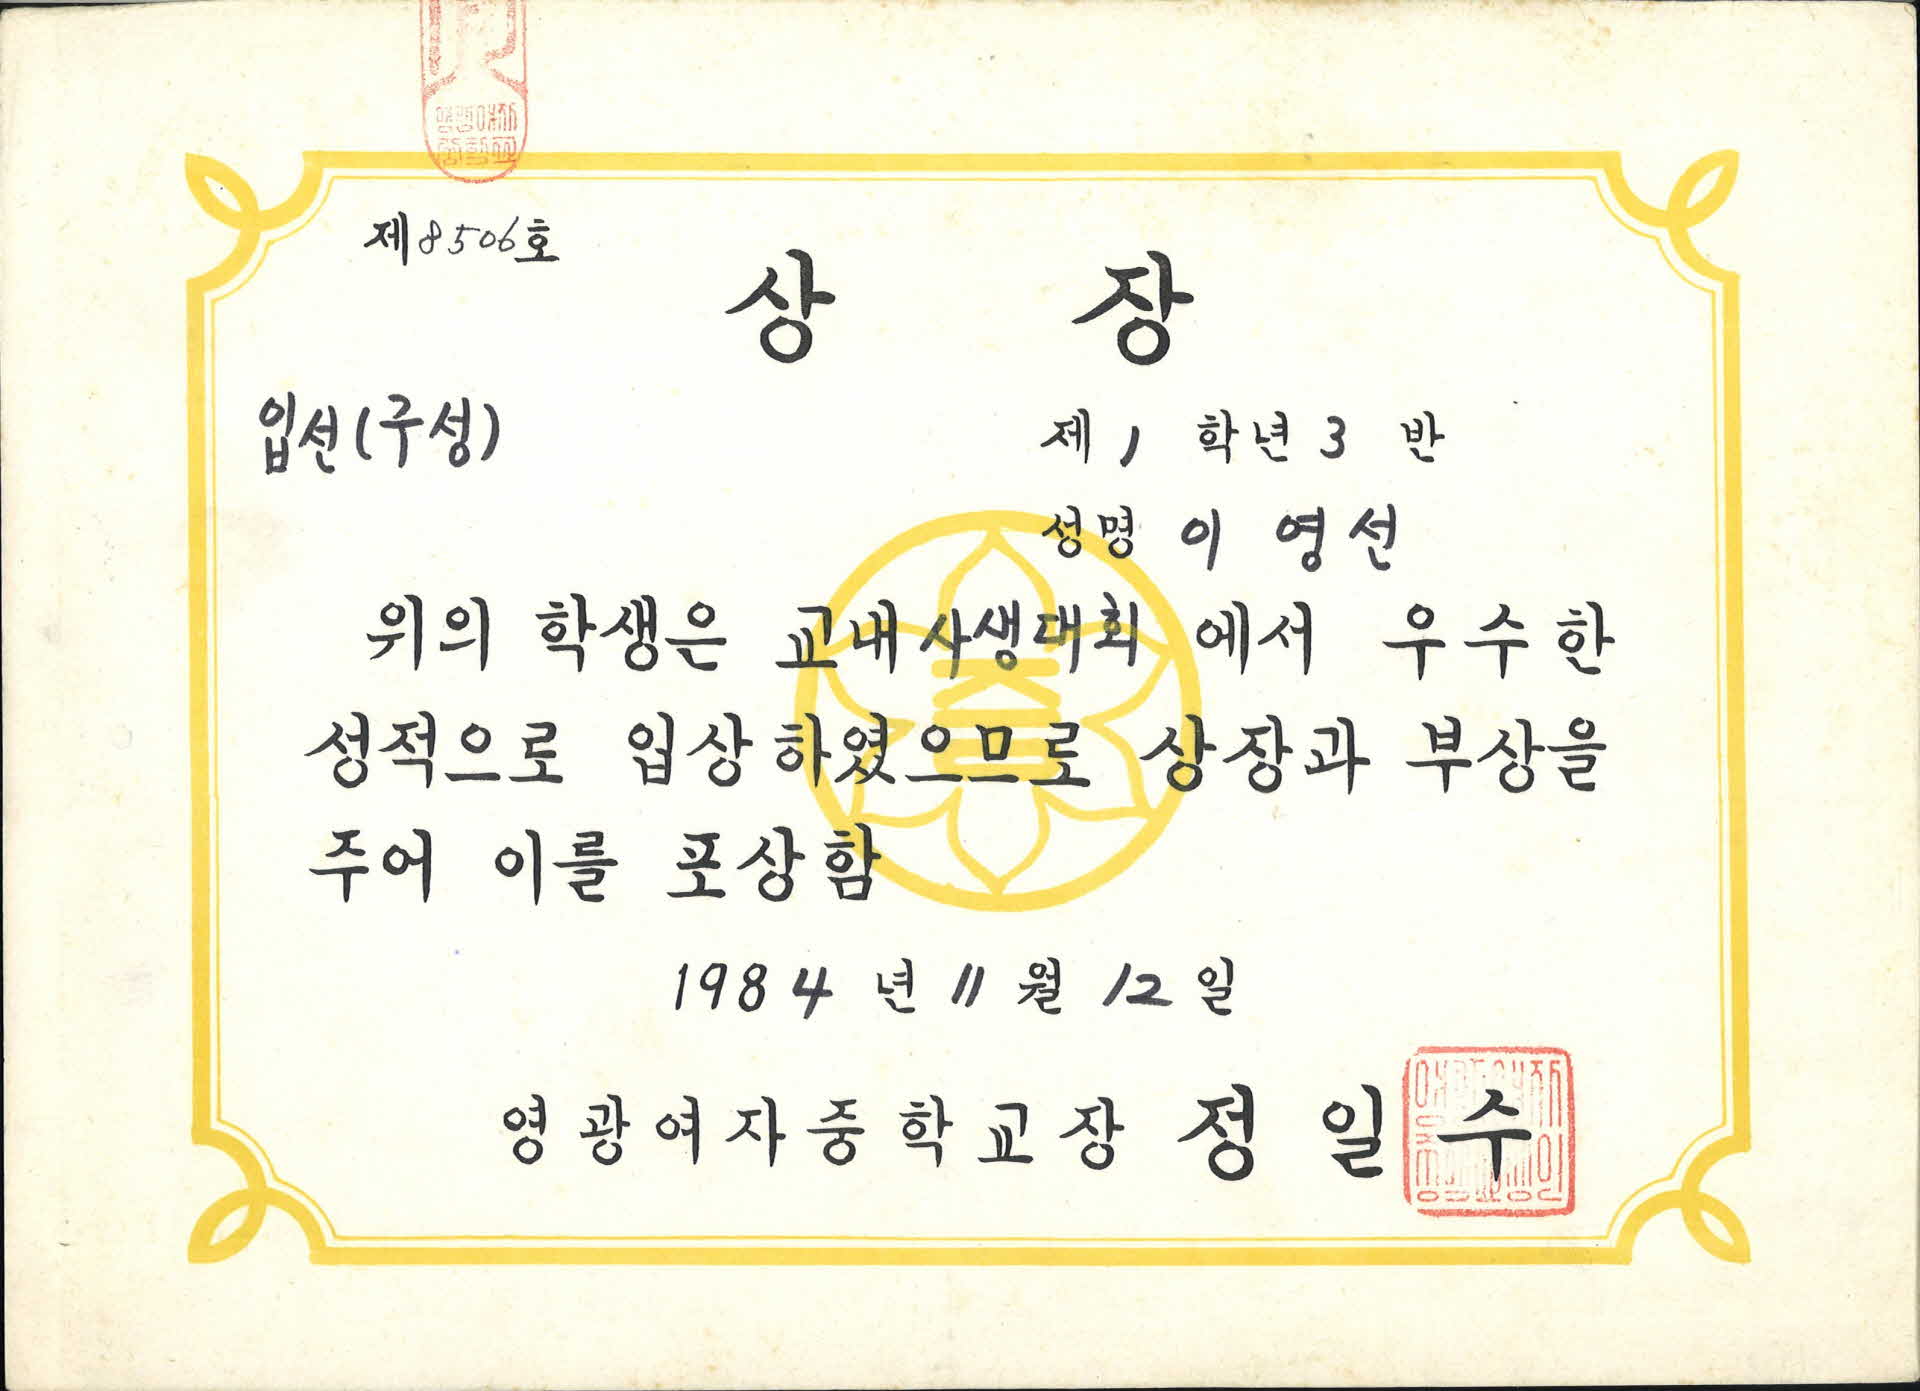 영광여자
중학교
제8506호
상장
입선(구성)
제1학년3반
성명 이영선
위의 학생은 교내사생대회에서 우수한
성적으로 입상하였으므로 상장과 부상을
주어 이를 포상함
1984년 11월 12일
영광여자중학교장 정일수